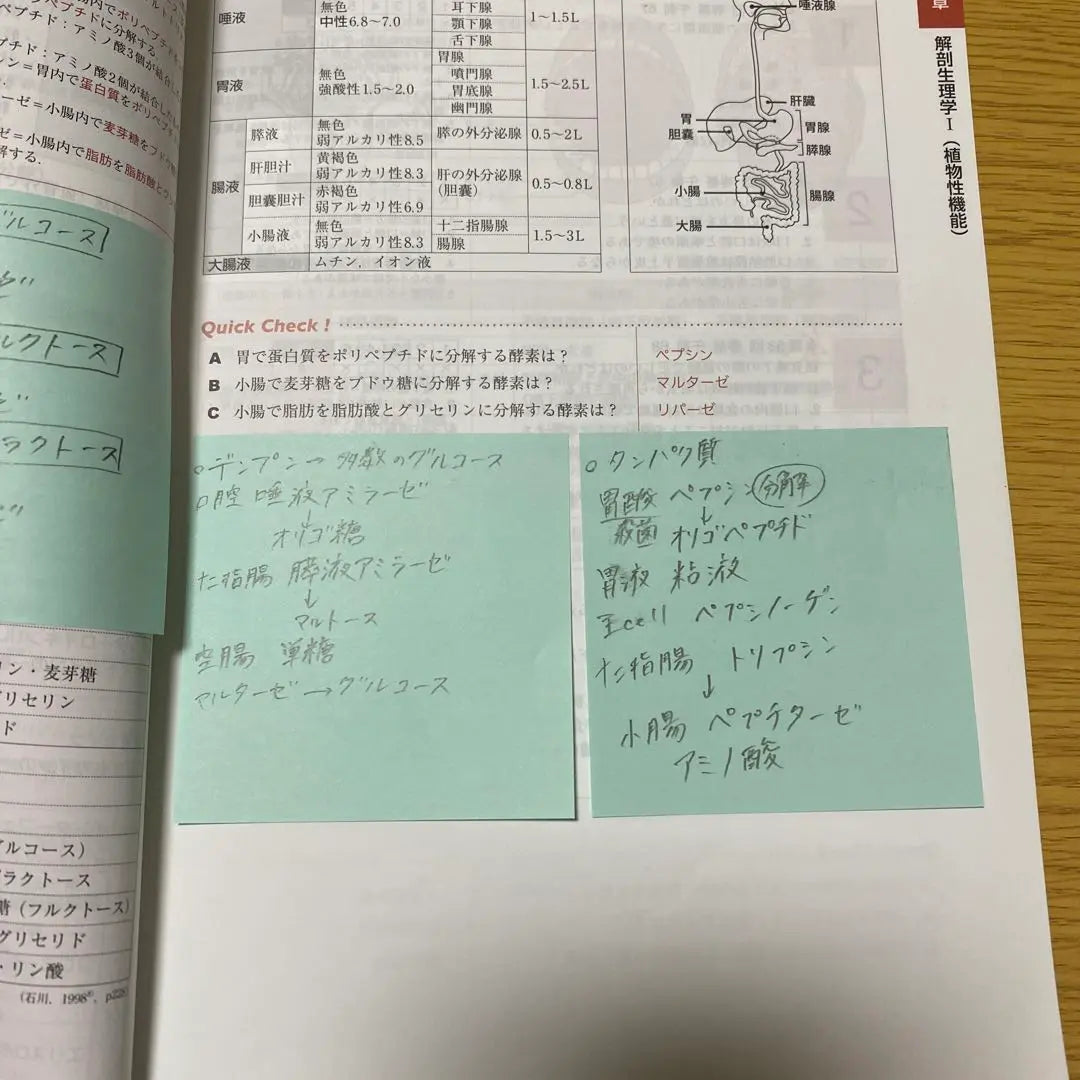 内でポリペプチド
ペプチドに分解する
ペプチド：アミノ酸3個が結合した
プチド：アミノ酸2個が結合したもの
シン＝胃内で蛋白質をポリペプチ
ーゼ＝小腸内で麦芽糖をブドウ糖
ゼ＝小腸内で脂肪を脂肪酸とグ
解する．
ルコース
ルクトース
ラクトース
リン・麦芽糖
グリセリン
ド
グルコース）
ガラクトース
糖（フルクトース）
グリセリド
・リン酸
（石川，1998
章
解剖生理学Ⅰ（植物性機能）
唾液
無色
中性6.8～7.0
耳下腺
顎下腺
舌下腺
1～1.5L
胃液
無色
強酸性1.5～2.0
胃腺
噴門腺
胃底腺
幽門腺
1.5～2.5L
腸液
膵液
無色
弱アルカリ性8.5
膵の外分泌腺
0.5～2L
肝胆汁
黄褐色
弱アルカリ性8.3
肝の外分泌腺
（胆嚢）
0.5～0.8L
胆嚢胆汁
赤褐色
弱アルカリ性6.9
小腸液
無色
弱アルカリ性8.3
十二指腸腺
腸腺
1.5～3L
大腸液
ムチン，イオン液
唾液腺
肝臓
胃
胆嚢
胃腺
膵腺
小腸
腸腺
大腸
Quick Check！
A 胃で蛋白質をポリペプチドに分解する酵素は？ ペプシン
B 小腸で麦芽糖をブドウ糖に分解する酵素は？ マルターゼ
C 小腸で脂肪を脂肪酸とグリセリンに分解する酵素は？ リパーゼ
○デンプン→多数のグルコース
口腔 唾液アミラーゼ
↓
オリゴ糖
十二指腸 膵液アミラーゼ
↓
マルトース
空腸 単糖
マルターゼ→グルコース
○タンパク質
胃酸 ペプシン 分解
↓
殺菌 オリゴペプチド
胃液 粘液
主cell ペプシノーゲン
十二指腸 トリプシン
↓
小腸 ペプチターゼ
アミノ酸